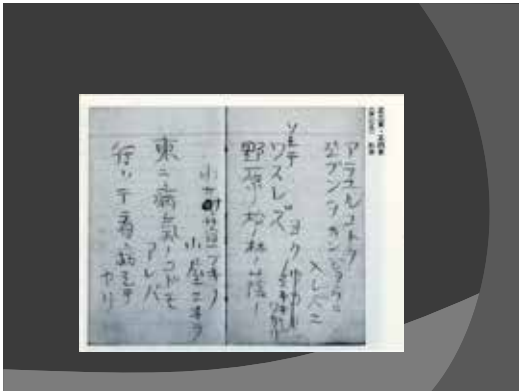 アラユルコトヲ
ジブンヲカンジョウニ
入レズニ
ヨクミキキシワカリ
ソシテ
ワスレズ
野原ノ松ノ林ノ蔭ノ
小サナ萱ブキノ
小屋ニヰテ
東ニ病気ノコドモ
アレバ
行ッテ看病シテ
ヤリ